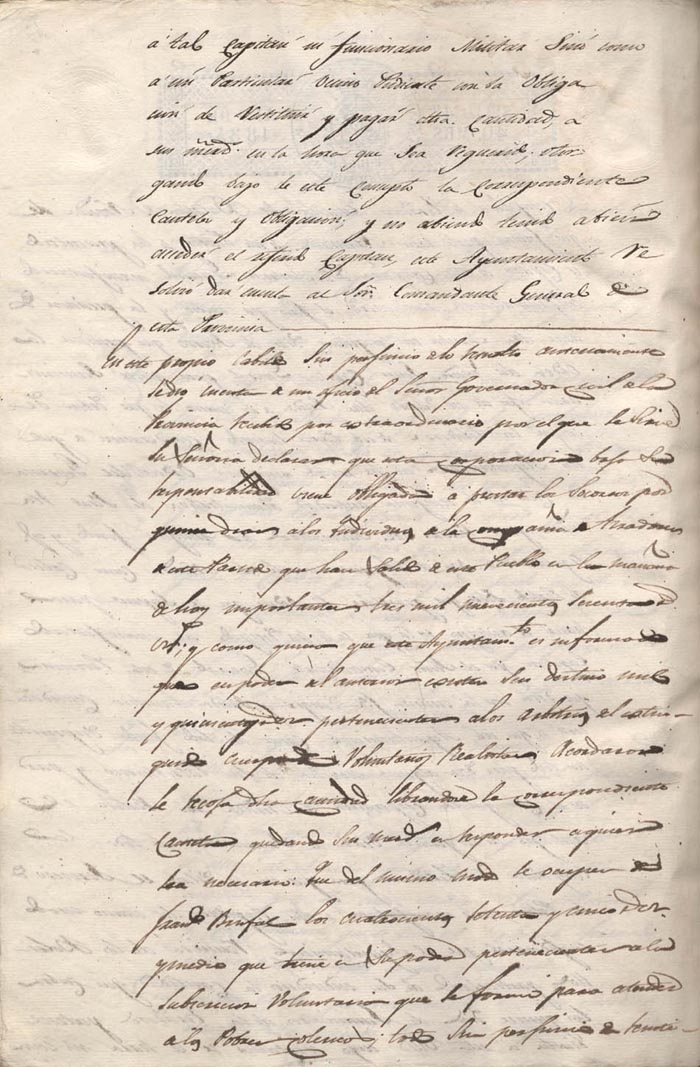 á tal Capitán ni funcionario Militar Sinó como
a un Particular vecino Pudiente con la Obliga
ción de Restituir y pagar dha Cantidad, a
sus mrds. en la hora que Sea requerido, otor
gando bajo de este Concepto la Correspondiente
Cautela y Obligacion; y no abiendo tenido a bien
acceder el referido Capitan, este Ayuntamiento Re
solvió dar cuenta al Sor. Comandante General de
esta Provincia
En este propio Cabildo Sin perjuicio de lo
se dió cuenta de un oficio del Señor Governador civil de la
Provincia recibido por extraordinario por el que
Su Señoria declarar que esta corporacion bajo Su
responsabilidad viene obligada á prestar los Socorros por
quince dias a los Individuos de la compañia de Tiradores
de este Partido que han Salido de este Pueblo en la mañana
de hoy importantes tres mil novecientos Sesenta
y como quiera que este Ayuntamto. es informado
que en poder del anterior existen Sin destino mil
y quinientos pertenecientes a los Arbitrios del extin
guido cuerpo de Voluntarios Realistas; Acordaron
se recoja dha cantidad librandose la correspondiente
Cautela quedando Sus mrds. en responder a quien
sea necesario. Que del mismo modo se ocupen de
los cuatrocientos Setenta y cinco
y medio que tiene en Su poder pertenecientes a la
Subscricion Voluntaria que se formó para atender
a los Pobres colericos; todo Sin perjuicio de